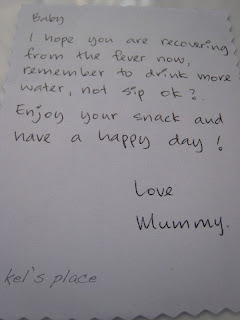 Baby
I hope you are recovering
from the fever now,
remember to drink more
water, not sip ok?
Enjoy your snack and
have a happy day!
Love
Mummy.
kel's place